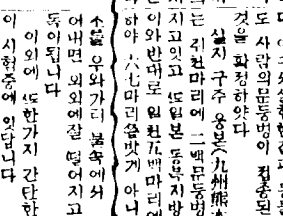 도 사람의문둥병이 접종된
것을 확정하얏다
구주 웅본(九州熊本
는 쥐천마리에 二백문둥병
지고잇고 또일본 동북지방
이와반대로 일천五백마리에
하야 六七마리쯤밧게 아니
우와가리 불속에서
어내면 외외에잘 떨어지고
독이됩니다
이외에 또한가지 간단한
이 시험중에 잇답니다